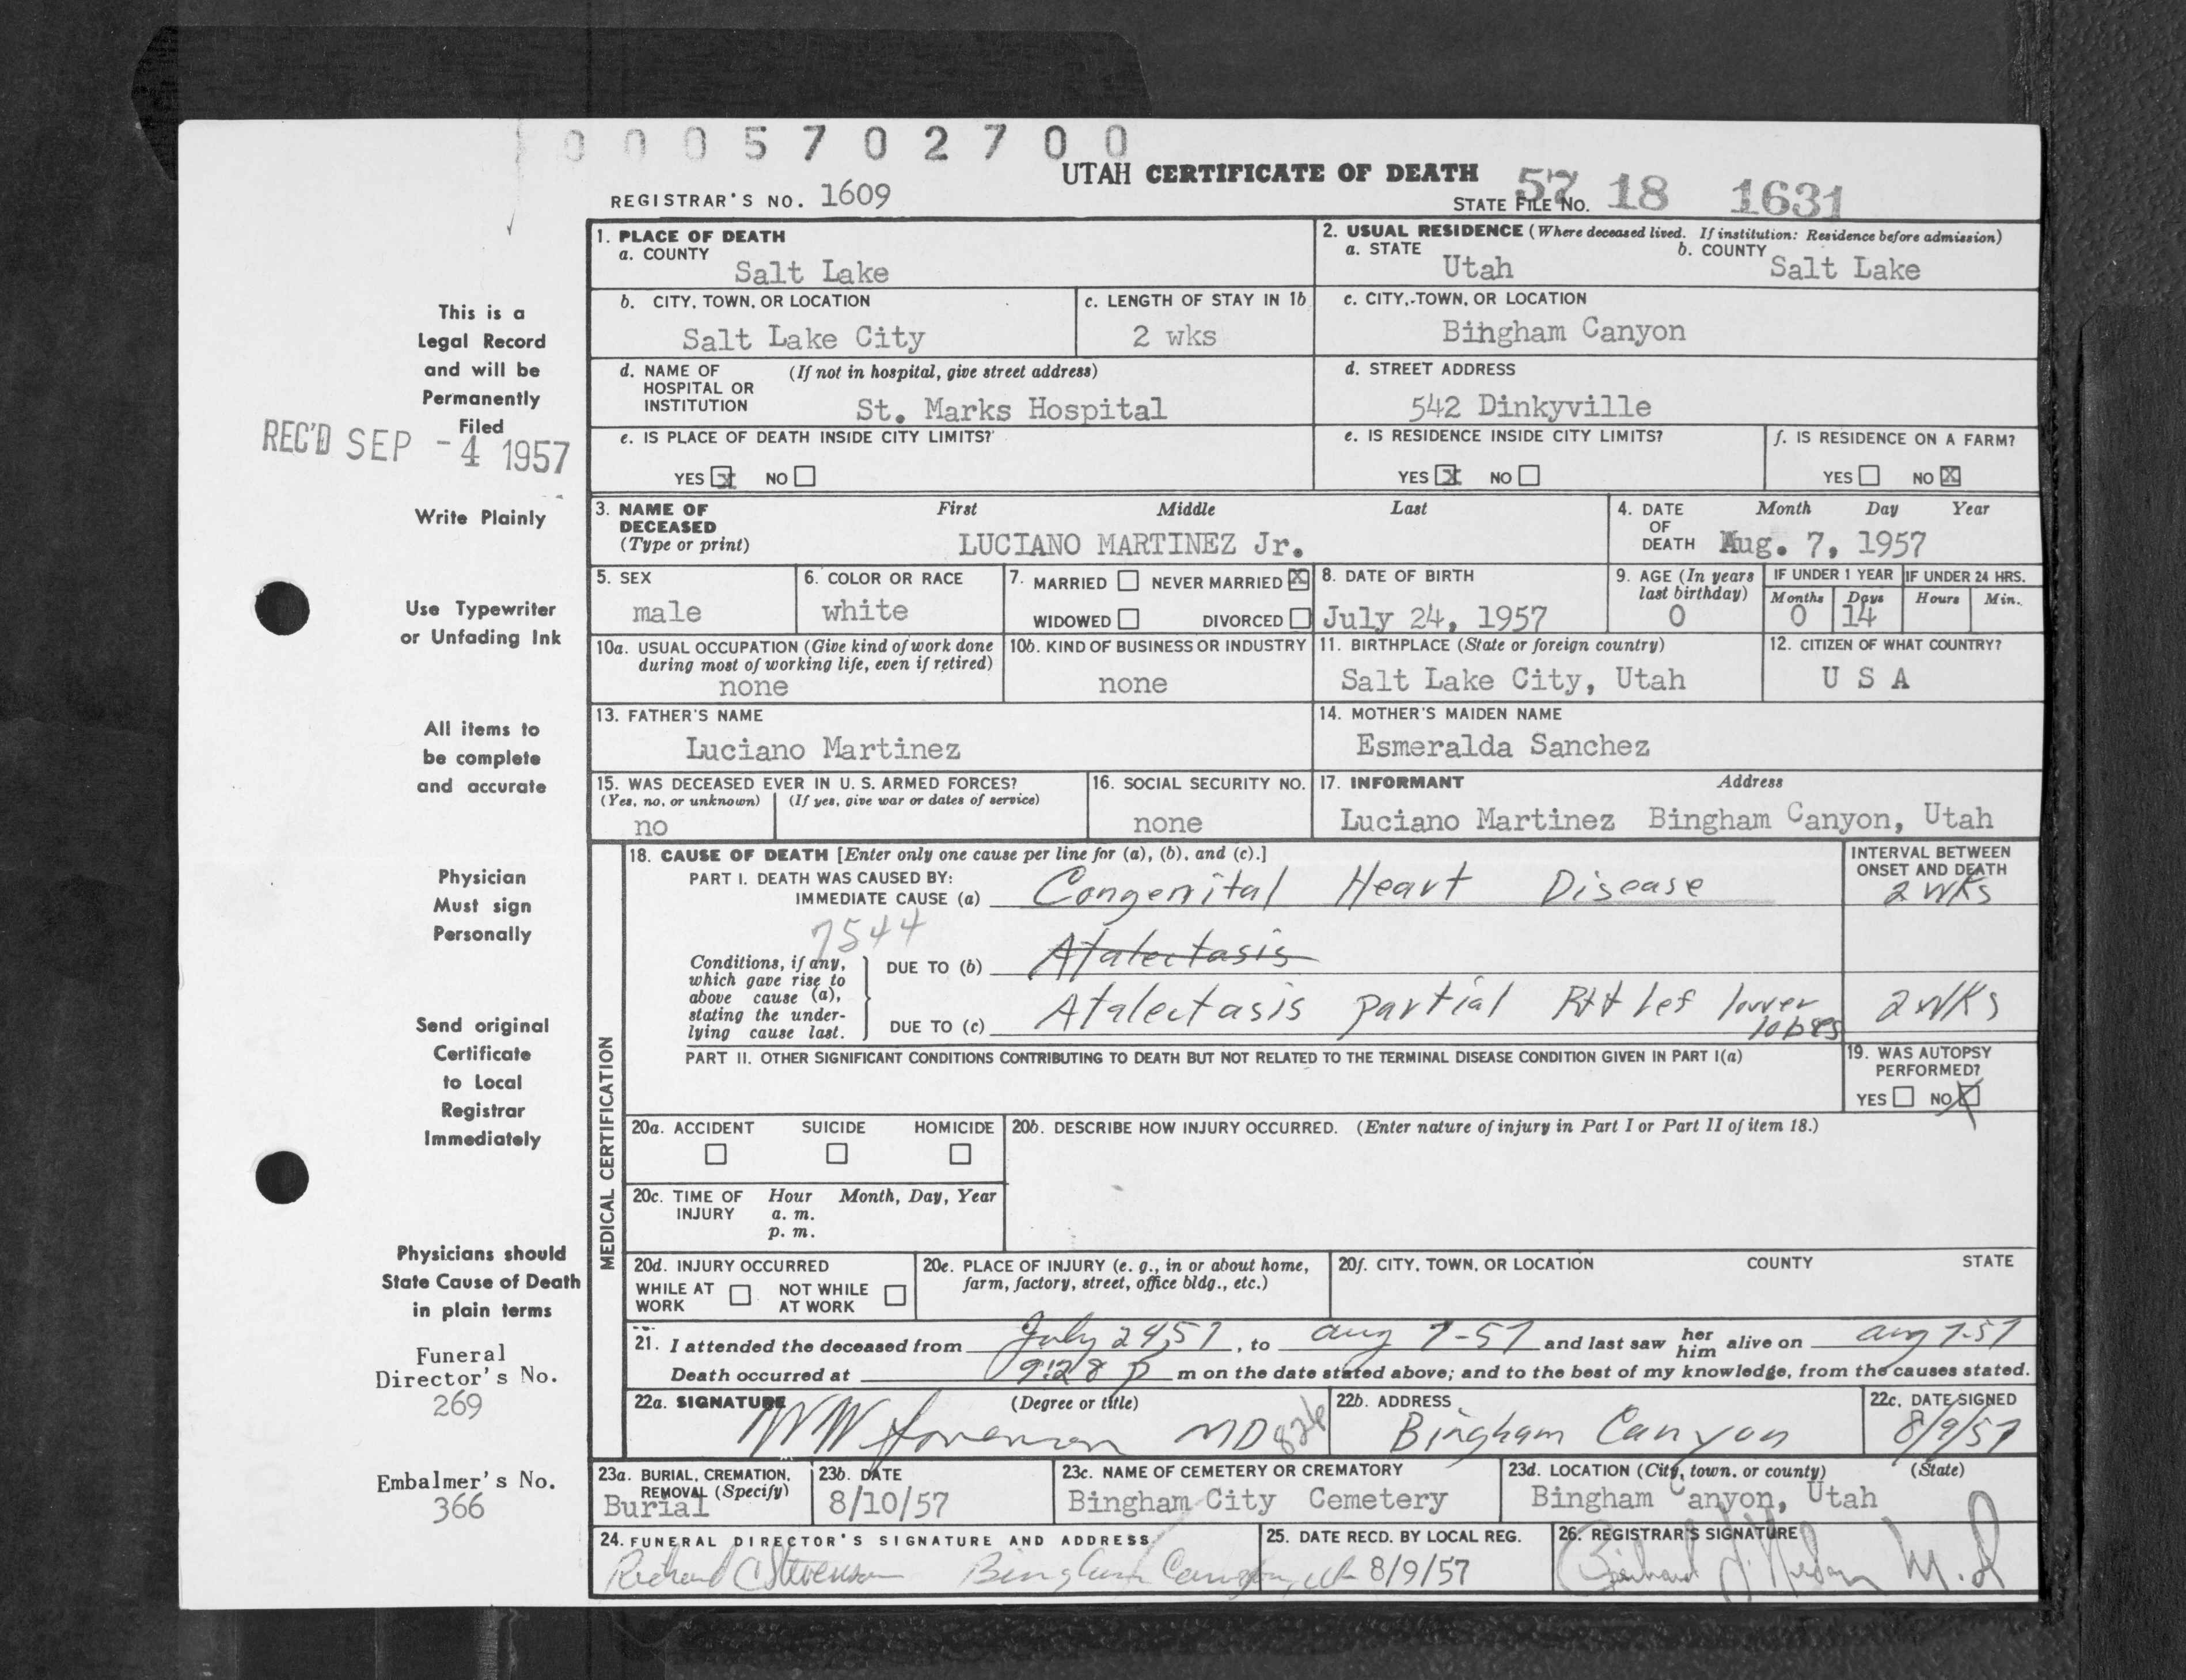 0 0 0 5 7 0 2 7 0 0
UTAH CERTIFICATE OF DEATH
REGISTRAR'S NO. 1609
STATE FILE NO. 57 18 1631
This is a
Legal Record
and will be
Permanently
Filed
REC'D SEP -4 1957
Write Plainly
Use Typewriter
or Unfading Ink
All items to
be complete
and accurate
Physician
Must sign
Personally
Send original
Certificate
to Local
Registrar
Immediately
Physicians should
State Cause of Death
in plain terms
Funeral
Director's No.
269
Embalmer's No.
366
1. PLACE OF DEATH
a. COUNTY
Salt Lake
2. USUAL RESIDENCE (Where deceased lived. If institution: Residence before admission)
a. STATE b. COUNTY
Utah Salt Lake
b. CITY, TOWN, OR LOCATION
Salt Lake City
c. LENGTH OF STAY IN 1b
2 wks
c. CITY, TOWN, OR LOCATION
Bingham Canyon
d. NAME OF (If not in hospital, give street address)
HOSPITAL OR
INSTITUTION St. Marks Hospital
d. STREET ADDRESS
542 Dinkyville
e. IS PLACE OF DEATH INSIDE CITY LIMITS?
YES X NO
e. IS RESIDENCE INSIDE CITY LIMITS?
YES X NO
f. IS RESIDENCE ON A FARM?
YES NO X
3. NAME OF First Middle Last
DECEASED
(Type or print) LUCIANO MARTINEZ Jr.
4. DATE Month Day Year
OF
DEATH Aug. 7, 1957
5. SEX
male
6. COLOR OR RACE
white
7. MARRIED NEVER MARRIED X
WIDOWED DIVORCED
8. DATE OF BIRTH
July 24, 1957
9. AGE (In years
last birthday)
0
IF UNDER 1 YEAR IF UNDER 24 HRS.
Months Days Hours Min.
0 14
10a. USUAL OCCUPATION (Give kind of work done
during most of working life, even if retired)
none
10b. KIND OF BUSINESS OR INDUSTRY
none
11. BIRTHPLACE (State or foreign country)
Salt Lake City, Utah
12. CITIZEN OF WHAT COUNTRY?
U S A
13. FATHER'S NAME
Luciano Martinez
14. MOTHER'S MAIDEN NAME
Esmeralda Sanchez
15. WAS DECEASED EVER IN U. S. ARMED FORCES?
(Yes, no, or unknown) (If yes, give war or dates of service)
no
16. SOCIAL SECURITY NO.
none
17. INFORMANT Address
Luciano Martinez Bingham Canyon, Utah
MEDICAL CERTIFICATION
18. CAUSE OF DEATH [Enter only one cause per line for (a), (b), and (c).]
PART I. DEATH WAS CAUSED BY:
IMMEDIATE CAUSE (a) Congenital Heart Disease
INTERVAL BETWEEN
ONSET AND DEATH
2 wks
7544
Conditions, if any,
which gave rise to
above cause (a),
stating the under-
lying cause last.
DUE TO (b) Atalectasis
DUE TO (c) Atalectasis partial Rt + Lef lower
lobes
2 wks
PART II. OTHER SIGNIFICANT CONDITIONS CONTRIBUTING TO DEATH BUT NOT RELATED TO THE TERMINAL DISEASE CONDITION GIVEN IN PART I(a)
19. WAS AUTOPSY
PERFORMED?
YES NO X
20a. ACCIDENT SUICIDE HOMICIDE
20b. DESCRIBE HOW INJURY OCCURRED. (Enter nature of injury in Part I or Part II of item 18.)
20c. TIME OF Hour Month, Day, Year
INJURY a. m.
p. m.
20d. INJURY OCCURRED
WHILE AT NOT WHILE
WORK AT WORK
20e. PLACE OF INJURY (e. g., in or about home,
farm, factory, street, office bldg., etc.)
20f. CITY, TOWN, OR LOCATION COUNTY STATE
21. I attended the deceased from July 24, 57, to Aug 7-57 and last saw her him alive on Aug 7-57
Death occurred at 9:28 P m on the date stated above; and to the best of my knowledge, from the causes stated.
22a. SIGNATURE (Degree or title)
MD 826
22b. ADDRESS
Bingham Canyon
22c. DATE SIGNED
8/9/57
23a. BURIAL, CREMATION,
REMOVAL (Specify)
Burial
23b. DATE
8/10/57
23c. NAME OF CEMETERY OR CREMATORY
Bingham City Cemetery
23d. LOCATION (City, town, or county) (State)
Bingham Canyon, Utah
24. FUNERAL DIRECTOR'S SIGNATURE AND ADDRESS
Richard C Stevenson Bingham Canyon, Ut
25. DATE RECD. BY LOCAL REG.
8/9/57
26. REGISTRAR'S SIGNATURE
M.D